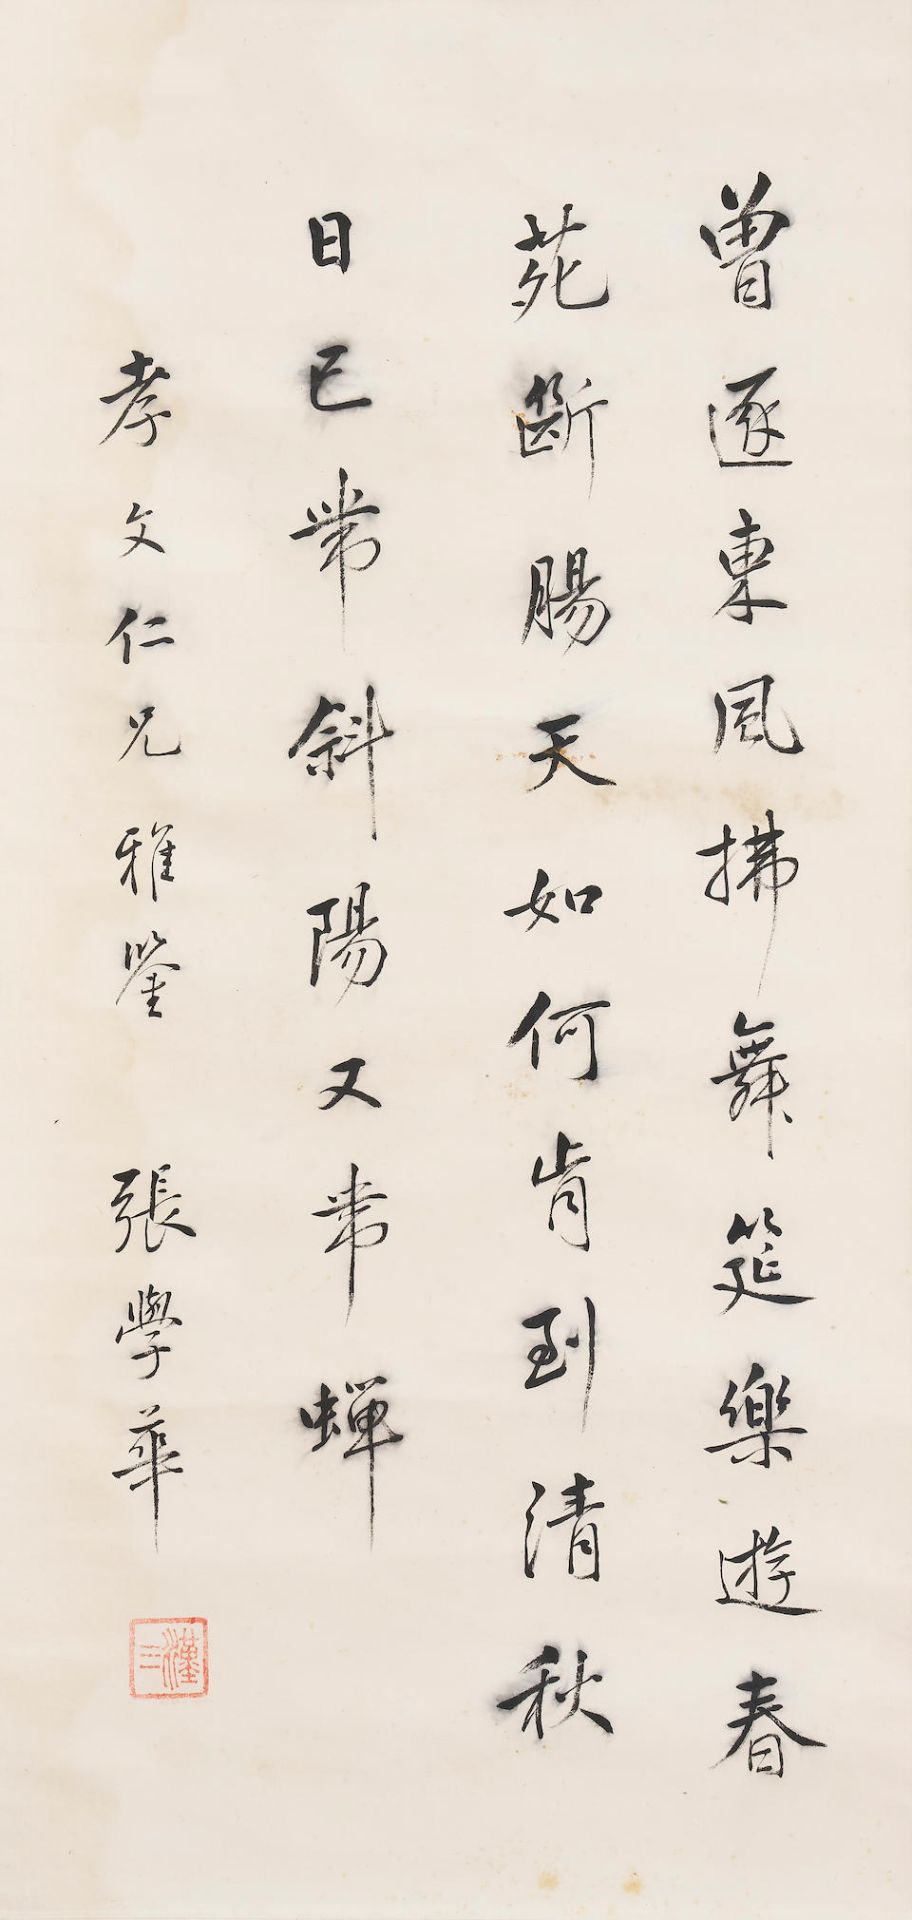 曾逐東風拂舞筵樂遊春
苑斷腸天如何肯到清秋
日已帶斜陽又帶蟬
孝文仁兄雅鑒 張學華
漢三